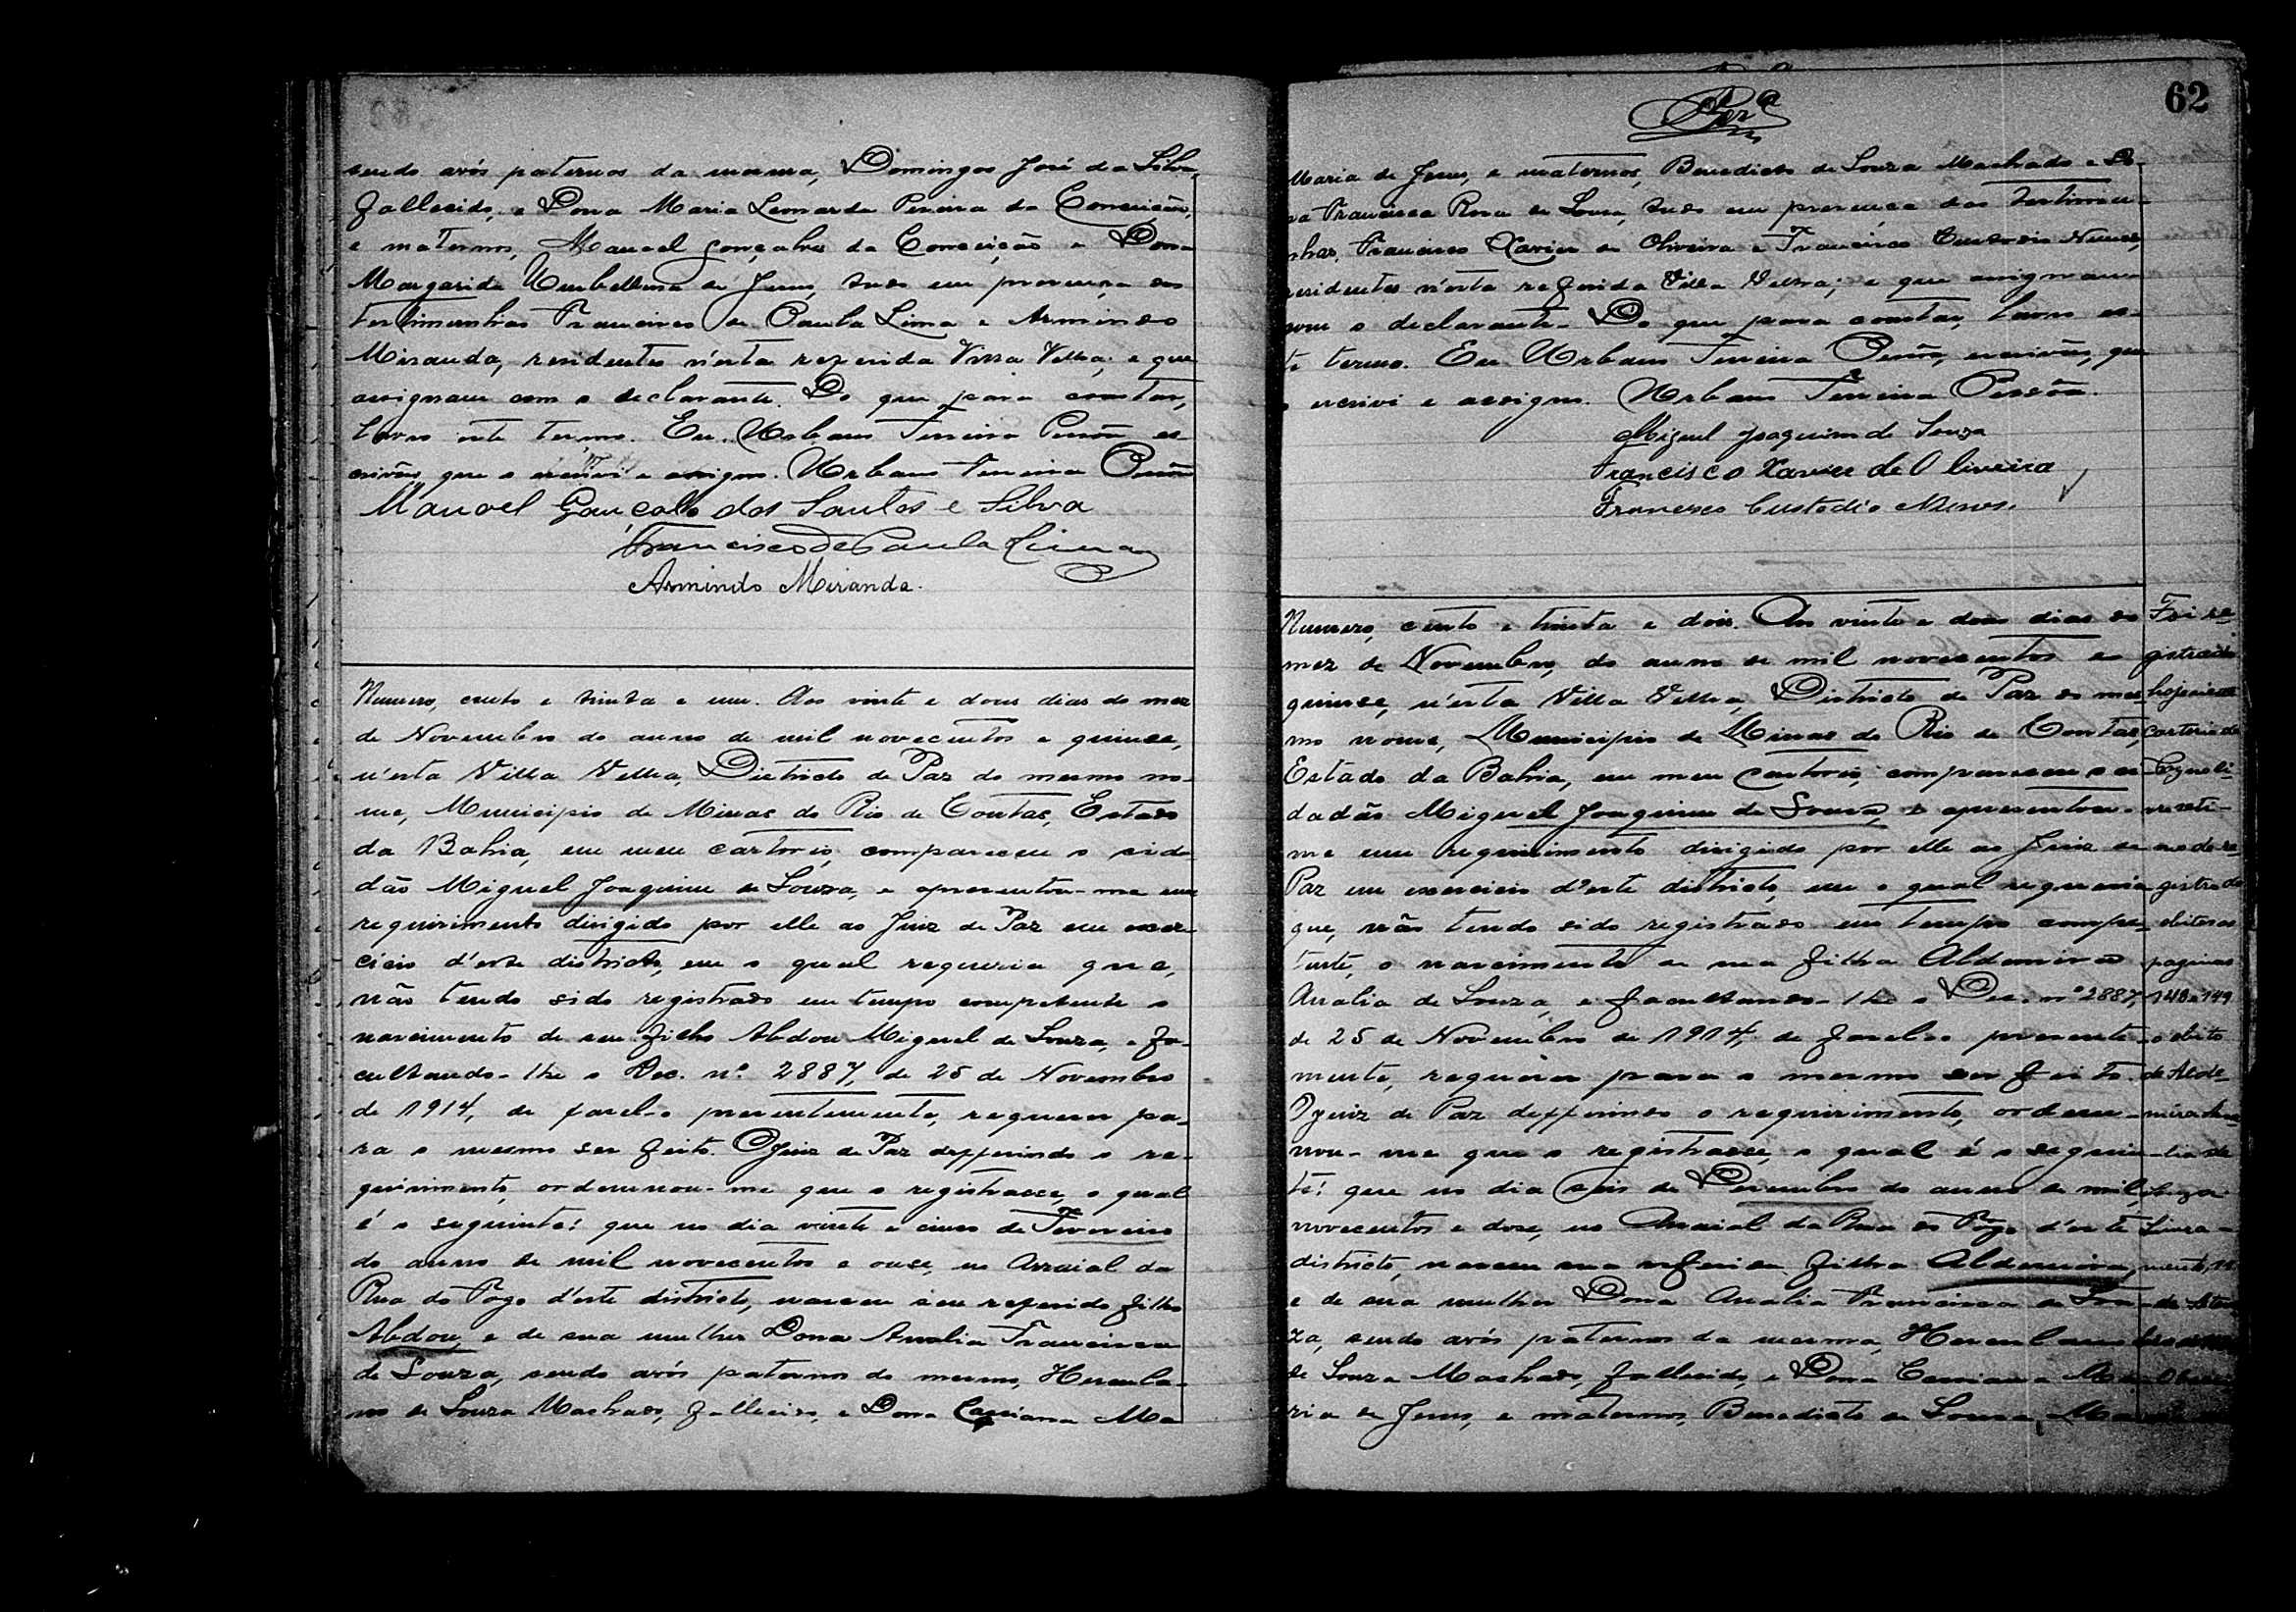 sendo avós paternos da mesma, Domingos José da Silva,
fallecido, e Dona Maria Leonarda Pereira da Conceição,
e maternos, Manoel Gonçalves da Conceição e Dona
Margarida Umbellina de Jesus, tudo em presença das
testimunhas Francisco de Paula Lima e Armindo
Miranda, residentes n'esta referida Villa Velha; e que
assignam com o declarante. Do que para constar,
lavro este termo. Eu Urbano Ferreira Pessôa es-
crivão, que o escrivi e assigno. Urbano Ferreira Pessôa
Manoel Gonçalo dos Santos e Silva
Francisco de Paula Lima
Armindo Miranda.
Numero, cento e trinta e um. Aos vinte e dous dias do mez
de Novembro do anno de mil novecentos e quinse,
n'esta Villa Velha, Districto de Paz do mesmo no-
me, Municipio de Minas do Rio de Contas, Estado
da Bahia, em meu cartorio, compareceu o cida-
dão Miguel Joaquim de Souza, e apresentou-me um
requirimento dirigido por elle ao Juiz de Paz em exer-
cicio d'este districto, em o qual requeria que,
não tendo sido registrado em tempo competente o
nascimento de seu filho Abdon Miguel de Souza, e fa-
cultando-lhe o Dec. nº 2887, de 25 de Novembro
de 1914, de fasel-o presentemente, requerer pa-
ra o mesmo ser feito. O Juiz de Paz defferindo o re-
quirimento, ordennou-me que o registrasse, o qual
é o seguinte: que no dia vinte e cinco de Fevereiro
do anno de mil novecentos e onse, no Arraial da
Rua do Fogo d'este districto, nasceu seu referido filho
Abdon, e de sua mulher Dona Analia Francisca
de Souza, sendo avós paternos do mesmo, Hercula-
no de Souza Machado, fallecido, e Dona Cassiana Ma
62
Maria de Jesus, e maternos, Benedicto de Souza Machado e Do-
na Francisca Rosa de Souza, tudo em presença das testimu-
nhas, Francisco Xavier de Oliveira e Francisco Custodio Nunes,
residentes n'esta referida Villa Velha; e que assignam
com o declarante. Do que para constar, lavro es-
te termo. Eu Urbano Ferreira Pessôa, escrivão, que
o escrivi e assigno. Urbano Ferreira Pessôa.
Miguel Joaquim de Souza
Francisco Xavier de Oliveira
Francisco Custodio Nunes.
Numero, cento e trinta e dois. Aos vinte e dous dias do
mez de Novembro, do anno de mil novecentos e
quinse, n'esta Villa Velha, Districto de Paz do mes-
mo nome, Municipio de Minas do Rio de Contas,
Estado da Bahia, em meu cartorio, compareceu o ci-
dadão Miguel Joaquim de Souza, e apresentou-
me um requirimento dirigido por elle ao Juiz de
Paz em exercicio d'este districto, em o qual requeria
que, não tendo sido registrado em tempo compe-
tente, o nascimento de sua filha Aldemira
Analia de Souza, e facultando-lhe o Dec. nº 2887,
de 25 de Novembro de 1914, de fasel-o presente-
mente, requerer para o mesmo ser feito.
O Juiz de Paz defferindo o requirimento, orden-
nou-me que o registrasse, o qual é o seguin-
te: que no dia seis de Desembro do anno de mil
novecentos e dose, no Arraial da Rua do Fogo d'este
districto, nasceu sua referida filha Aldemira,
e de sua mulher Dona Analia Francisca de Sou-
za, sendo avós paternos da mesma, Herculano
de Souza Machado, fallecido, e Dona Cassiana Ma-
ria de Jesus, e maternos, Benedicto de Souza Ma
Foi re-
gistrado
hoje
cartorio de
registrado
obitos as
paginas
148 a 149
o obito
de Alde-
mira Ana-
lia de
Souza